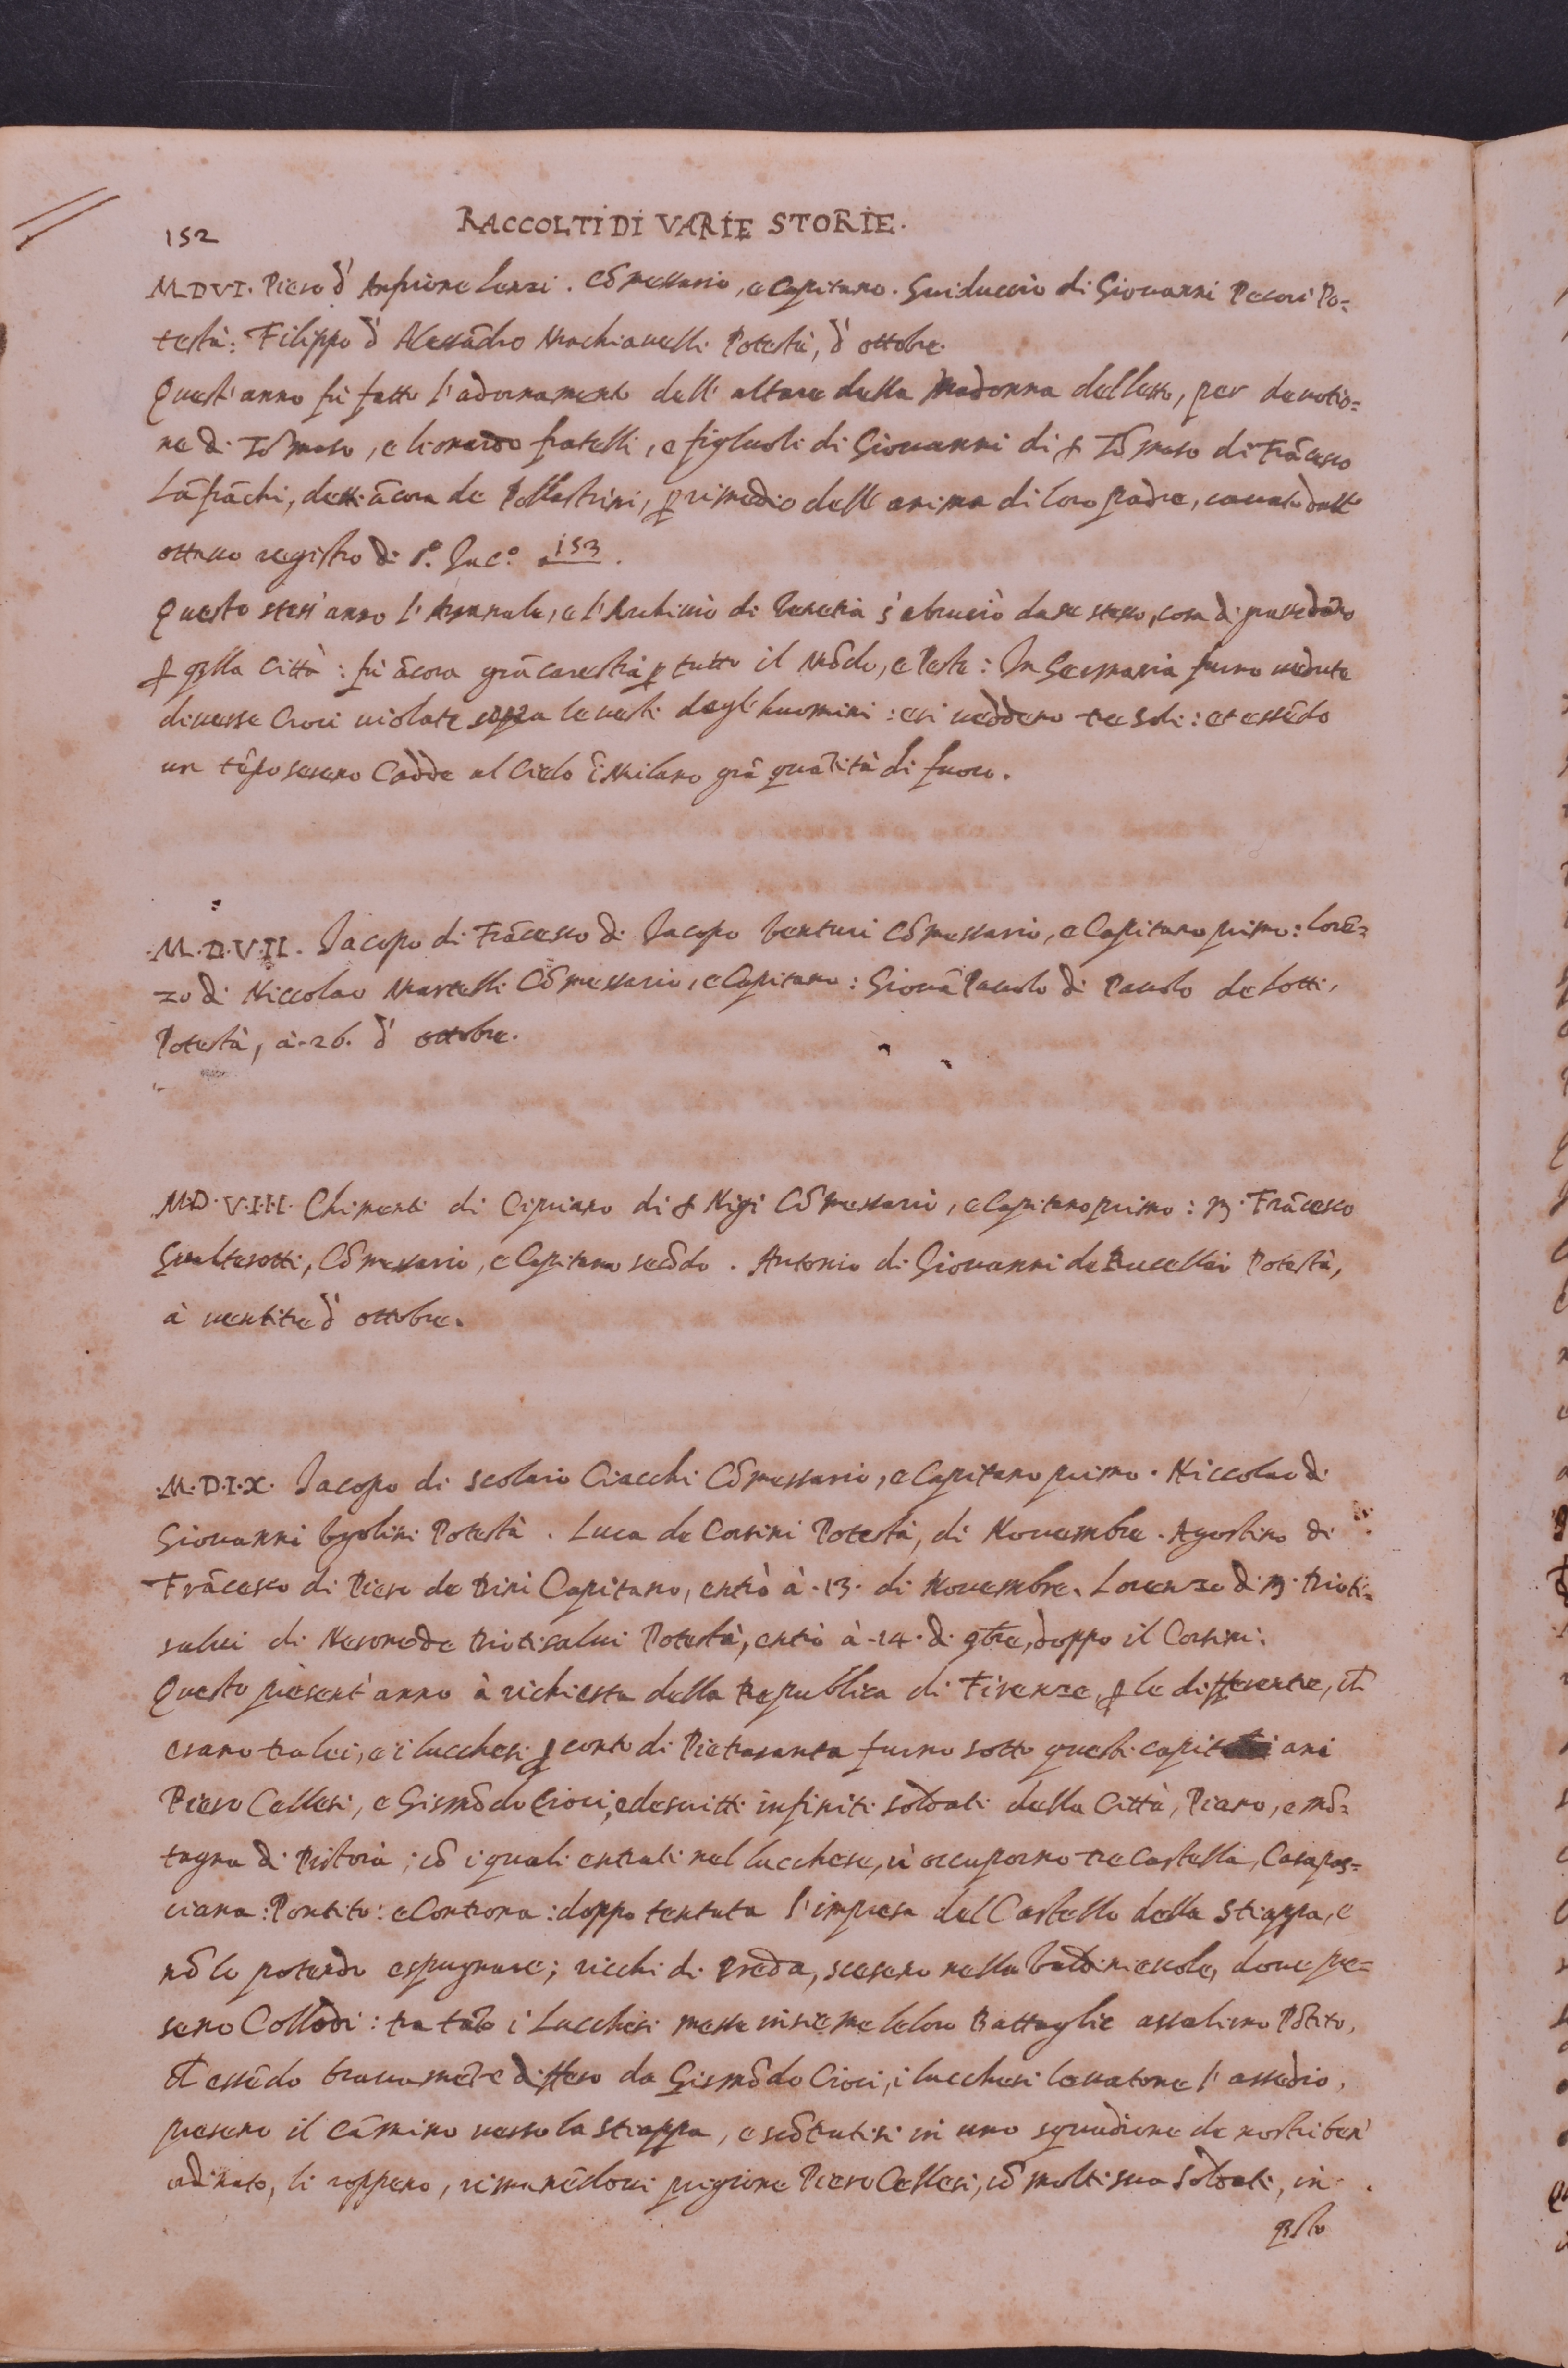 152
RACCOLTI DI VARIE STORIE.
M.D.VI. Piero d' Anfrione Lenzi. Cōmessario, e Capitano. Guiduccio di Giouanni Pecori Po=
testà: Filippo d' Alessādro Machiauelli Potestà, d' ottobre.
Quest' anno fù fatto l'adornamento dell' altare della Madonna del letto, per deuotio=
ne di Tōmaso, e lionardo fratelli, e figluoli di Giouanni di s. Tōmaso di Frācesco
Lāfrāchi, detti ācora de Pollastrini, ꝑ rimedio dell' anima di loro padre, cauato dall'
ottauo registro di s.º Iac.º a 153.
Questo stess' anno l'Arsenale, e l'Archiuio di Venetia s' abruciò da se stesso, cosa di grauedāno
ꝑ q̄lla Città: fù ācora grā carestia ꝑ tutto il Mōdo, e Peste: In Germania furno uedute
diuerse Croci uiolate sopra le uesti degl' huomini: e si ueddero tre Soli: et essēdo
un tēpo sereno Cadde al Cielo ī Milano grā quātità di fuoco.
M.D.VII. Iacopo di Frācesco di Iacopo Venturi Cōmessario, e Capitano primo: Lorē=
zo di Niccolao Martelli Cōmessario, e Capitano: Giouā Pauolo di Pauolo de Lotti,
Potestà, à.26. d' ottobre.
M.D.V.I.I.I. Chimenti di Cipriano di s. Nigi Cōmessario, e Capitano primo: M. Frācesco
Gualterotti, Cōmessario, e Capitano secōdo. Antonio di Giouanni de Rucellai Potestà,
à uentitre d' ottobre.
M.D.I.X. Iacopo di scolaio Ciacchi Cōmessario, e Capitano primo. Niccolao di
Giouanni Ugolini Potestà. Luca de Corsini Potestà, di Nouembre. Agostino di
Frācesco di Piero de Dini Capitano, entrò à.13. di Nouembre. Lorenzo di M. Dioti=
salui di Nerone de Diotisalui Potestà, entrò à.14. di 9bre, doppo il Corsini.
Questo present' anno à richiesta della Republica di Firenze, ꝑ le differentie, ch̄
erano tra lei, e i lucchesi ꝑ conto di Pietrasanta furno sotto questi capit ani
Piero Cellesi, e Gismōdo Cioci, descritti infiniti soldati della Città, Piano, e mō=
tagna di Pistoia; cō i quali entrati nel lucchese, ui occuporno tre Castella, Casapas=
ciana: Pontito: e Controna: doppo tentata l'impresa del Castello della Stiappa, e
nō lo potendo espugnare; ricchi di preda, scesero nella Valdinieuole, doue pre=
sero Collodi: tra tāto i Lucchesi messe insieme le loro Battaglie assalirno Pōtito,
ch̄ essēdo brauamēte diffeso da Gismōdo Cioci, i lucchesi leuatone l' assedio,
presero il cāmino uerso la stiappa, e scōtratisi in uno squadrone de nostri ben'
ordinato, li roppero, rimanēdoui prigione Piero Cellesi, cō molti sua Soldati, in
q̄sto